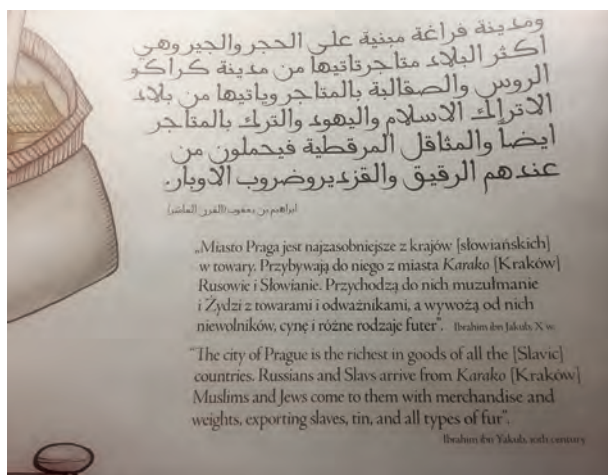 ومدينة فراغة مبنية على الحجر والجير وهي
اكثر البلاد متاجرتاتيها من مدينة كراكو
الروس والصقالبة بالمتاجر وياتيها من بلاد
الاتراك الاسلام واليهود والترك بالمتاجر
ايضاً والمثاقل المرقطية فيحملون من
عندهم الرقيق والقزدير وضروب الاوبار.
ابراهيم بن يعقوب (القرن العاشر)
„Miasto Praga jest najzasobniejsze z krajów [słowiańskich]
w towary. Przybywają do niego z miasta Karako [Kraków]
Rusowie i Słowianie. Przychodzą do nich muzułmanie
i Żydzi z towarami i odważnikami, a wywożą od nich
niewolników, cynę i różne rodzaje futer”. Ibrahim ibn Jakub, X w.
“The city of Prague is the richest in goods of all the [Slavic]
countries. Russians and Slavs arrive from Karako [Kraków]
Muslims and Jews come to them with merchandise and
weights, exporting slaves, tin, and all types of fur”.
Ibrahim ibn Yakub, 10th century